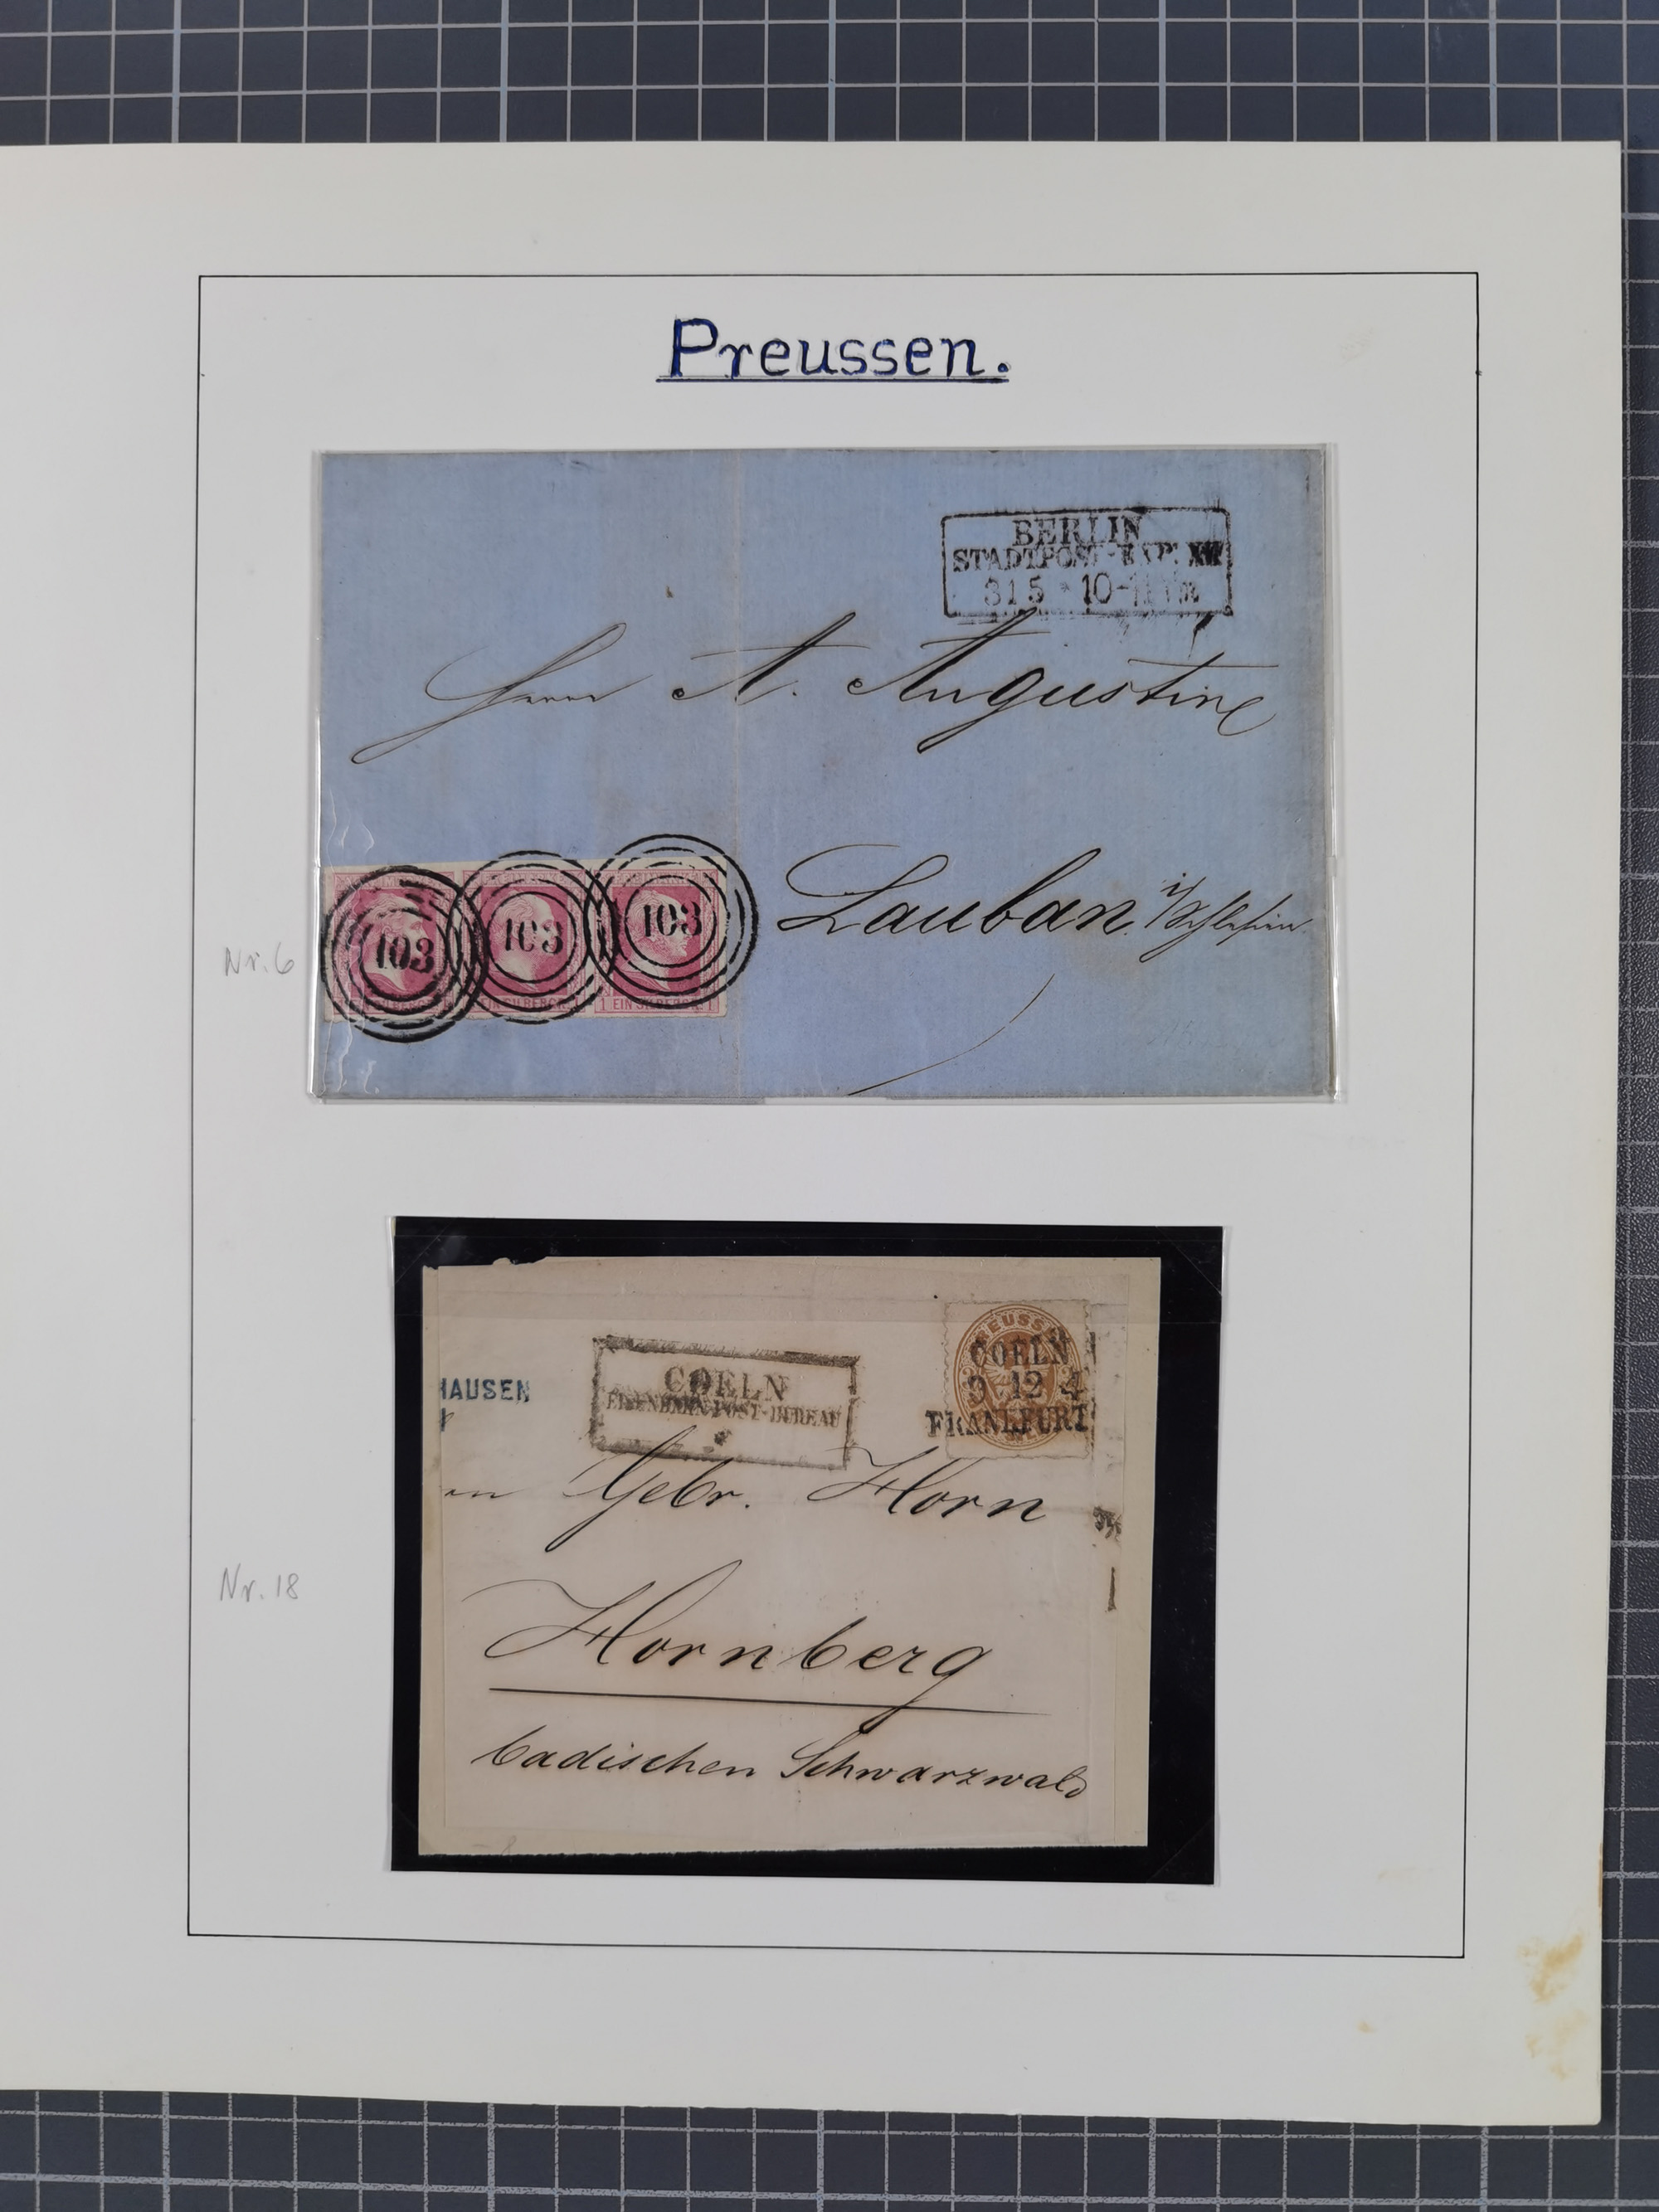 Preussen.
BERLIN
STADTPOST-EXP.
31 5 * 10-11 Vm
Herrn A. Augustine
Lauban i/Schlesien
103
103
103
EIN SILBERGR.
1 EIN SILBERGR. 1
Nr. 6
HAUSEN
COELN
EISENBAHN-POST-BUREAU
PREUSSEN
COELN
9 12 4
FRANKFURT
en Gebr. Horn
Nr. 18
Hornberg
badischen Schwarzwald